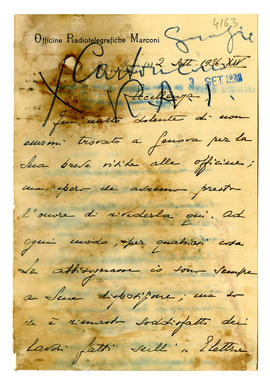 4163
Officine Radiotelegrafiche Marconi
Grazie
2 Sett. 1936-XIV
3 SET 1936
Eccellenza,
fui molto dolente di non
essermi trovato a Genova per la
Sua breve visita alle officine;
ma spero che avremo presto
l'onore di rivederla qui. Ad
ogni modo, per qualsiasi cosa
Le abbisognasse io sono sempre
a Sua disposizione; ma so
che è rimasto soddisfatto dei
lavori fatti sull' "Elettra